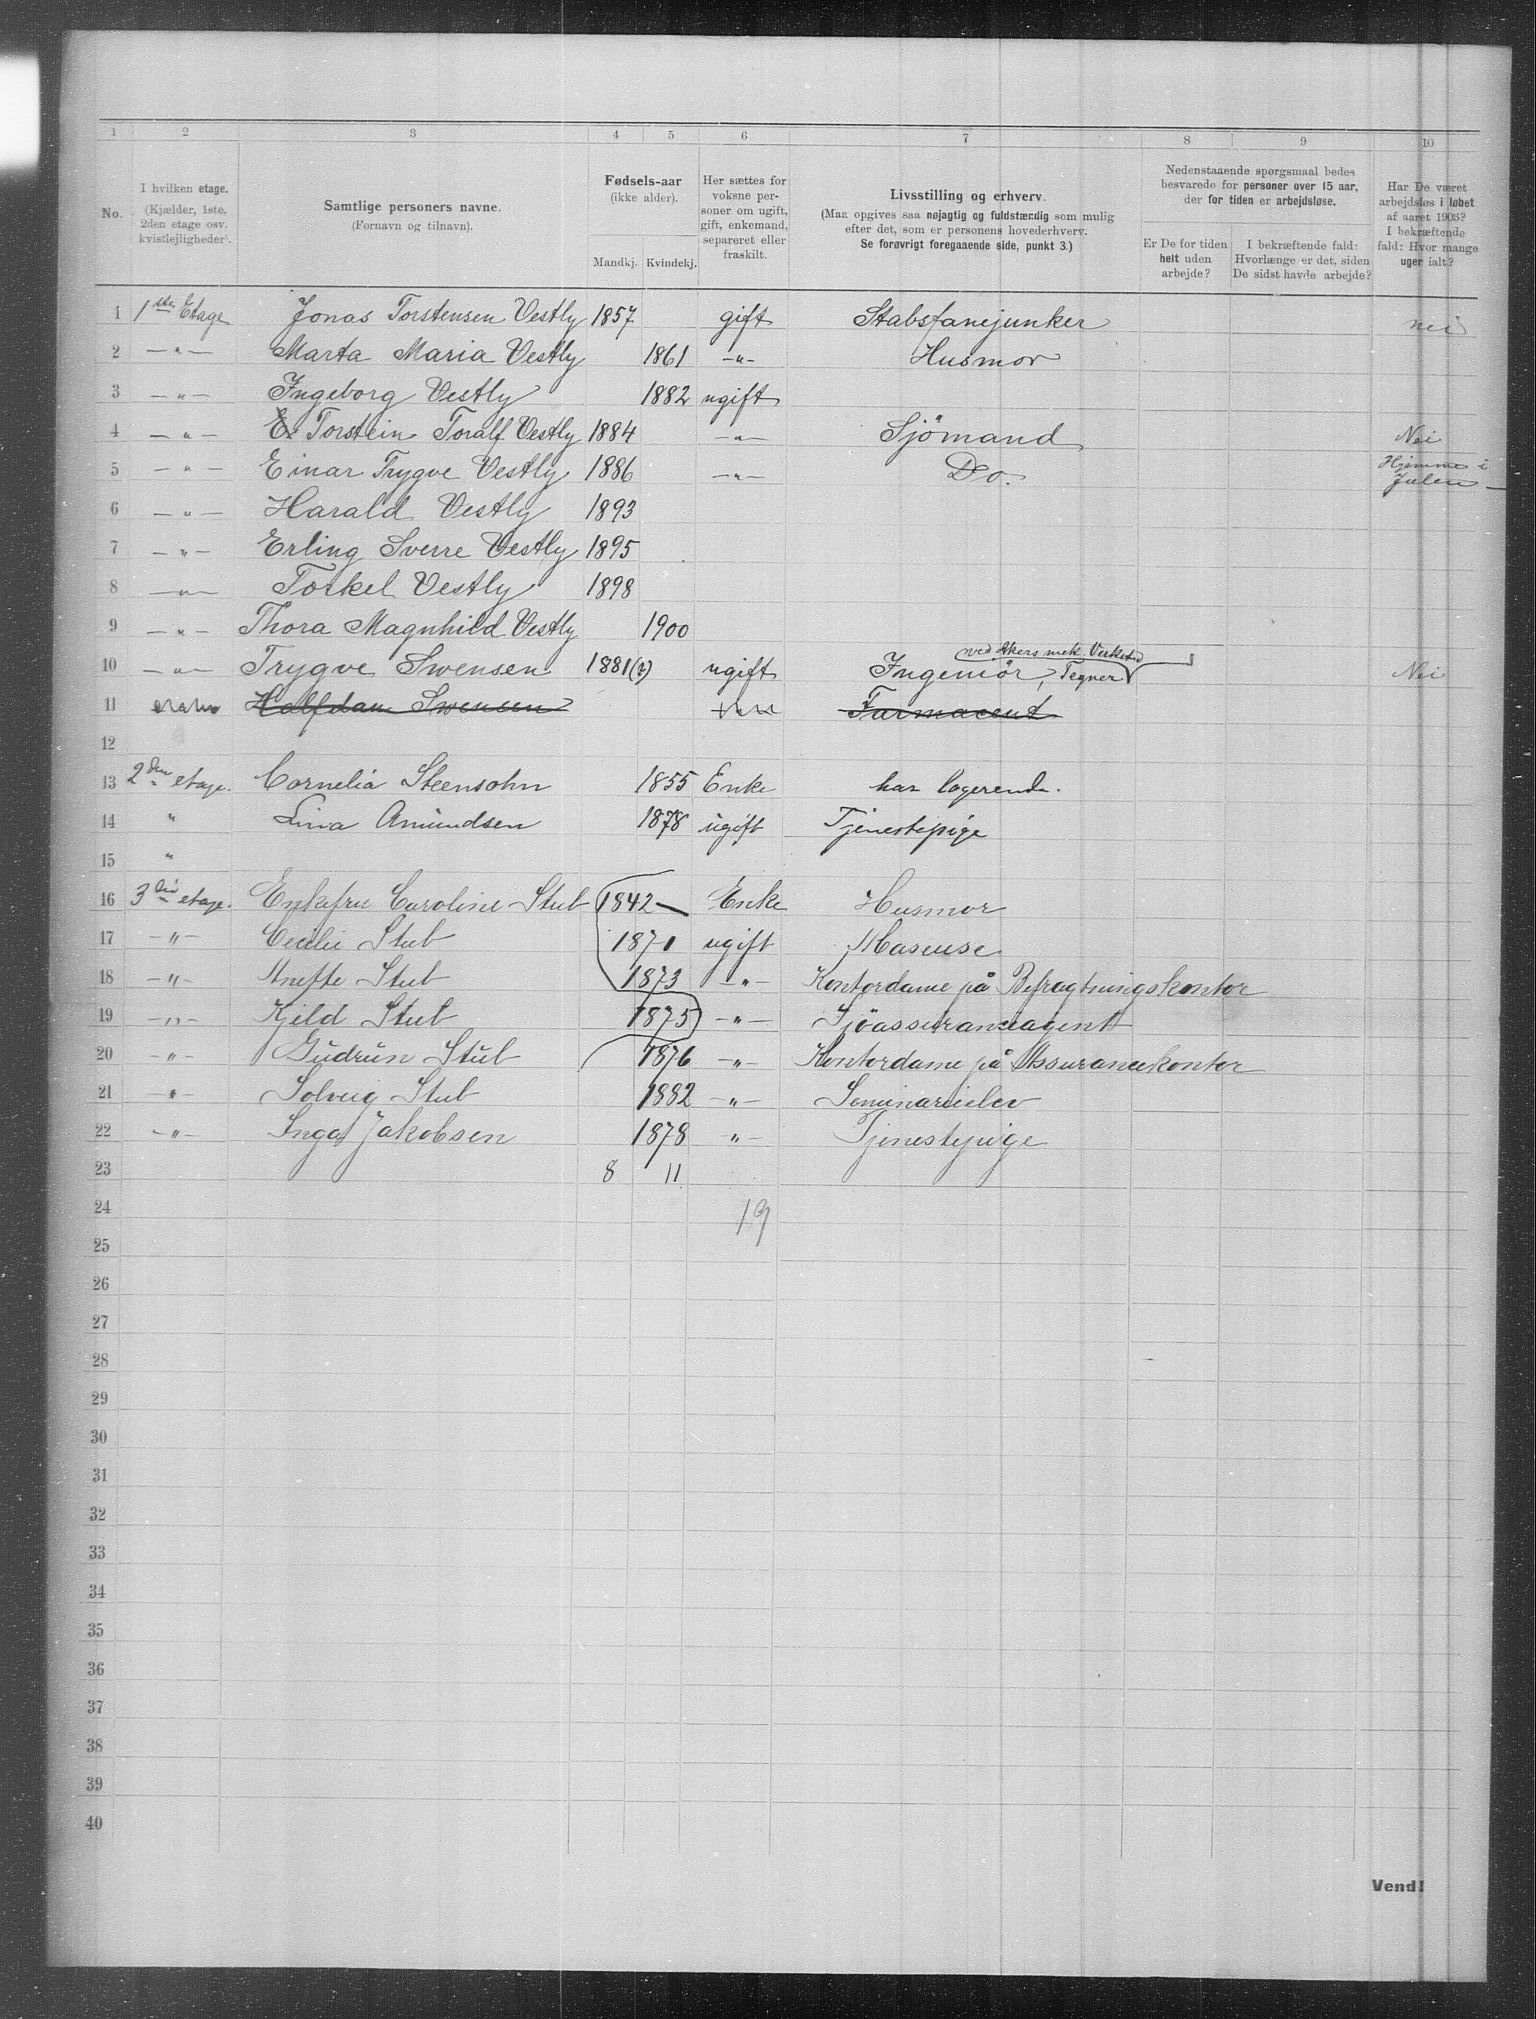 1 2 3 4 5 6 7 8 9 10
No.
I hvilken etage.
(Kjælder, 1ste,
2den etage osv.
kvistlejligheder).
Samtlige personers navne.
(Fornavn og tilnavn).
Fødsels-aar
(ikke alder).
Mandkj. Kvindekj.
Her sættes for
voksne per-
soner om ugift,
gift, enkemand,
separeret eller
fraskilt.
Livsstilling og erhverv.
(Maa opgives saa nøjagtig og fuldstændig som mulig
efter det, som er personens hovederhverv.
Se forøvrigt foregaaende side, punkt 3.)
Nedenstaaende spørgsmaal bedes
besvarede for personer over 15 aar,
der for tiden er arbejdsløse.
Er De for tiden
helt uden
arbejde?
I bekræftende fald:
Hvorlænge er det, siden
De sidst havde arbejde?
Har De været
arbejdsløs i løbet
af aaret 1903?
I bekræftende
fald: Hvor mange
uger ialt?
1 1ste Etage Jonas Torstensen Vestly 1857 gift Stabsfanejunker nei
2 —"— Marta Maria Vestly 1861 —"— Husmor
3 —"— Ingeborg Vestly 1882 ugift
4 —"— Torstein Toralf Vestly 1884 —"— Sjömand Nei
5 —"— Einar Trygve Vestly 1886 —"— Do. Hjemme i Julen
6 —"— Harald Vestly 1893
7 —"— Erling Sverre Vestly 1895
8 —"— Torkel Vestly 1898
9 —"— Thora Magnhild Vestly 1900
ved Akers mek. Verksted
10 —"— Trygve Swensen 1881 ugift Ingeniör, Tegner Nei
11 Halfdan Swensen Farmaceut
12
13 2den etage. Cornelia Steensohn 1855 Enke har logerende.
14 " Lina Amundsen 1878 ugift Tjenestepige
15 "
16 3die etage. Enkefru Caroline Stub 1842 — Enke Husmor
17 —"— Cecilie Stub 1871 ugift Maseuse
18 —"— Anette Stub 1873 —"— Kontordame på Befragtningskontor
19 —"— Kjeld Stub 1875 —"— Sjöassuranceagent
20 —"— Gudrun Stub 1876 —"— Kontordame på Assurancekontor
21 —"— Solveig Stub 1882 —"— Seminarieelev
22 —"— Inga Jakobsen 1878 —"— Tjenestepige
23 8 11
24 19
25
26
27
28
29
30
31
32
33
34
35
36
37
38
39
40
Vend!